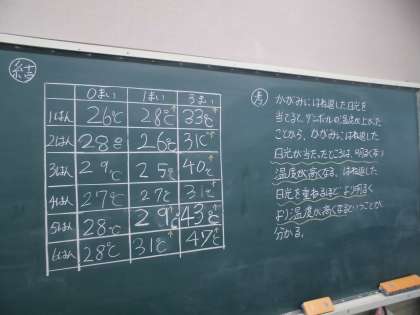 結
0まい 1まい 3まい
1ぱん 26℃ 28℃↑ 33℃↑
2はん 28℃ 26℃ 31℃↑
3ぱん 29℃ 25℃ 40℃↑
4はん 27℃ 27℃ 31℃↑
5はん 28℃ 29℃↑ 43℃↑
6ぱん 28℃ 31℃↑ 47℃↑
考
かがみにはね返した日光を
当てると、ダンボールの温度が上がった
ことから、かがみにはね返した
日光が当たったところは、明るく
温度が高くなる。はね返した
日光を重ねるほど、より明るく
より温度が高くなるということが
分かる。